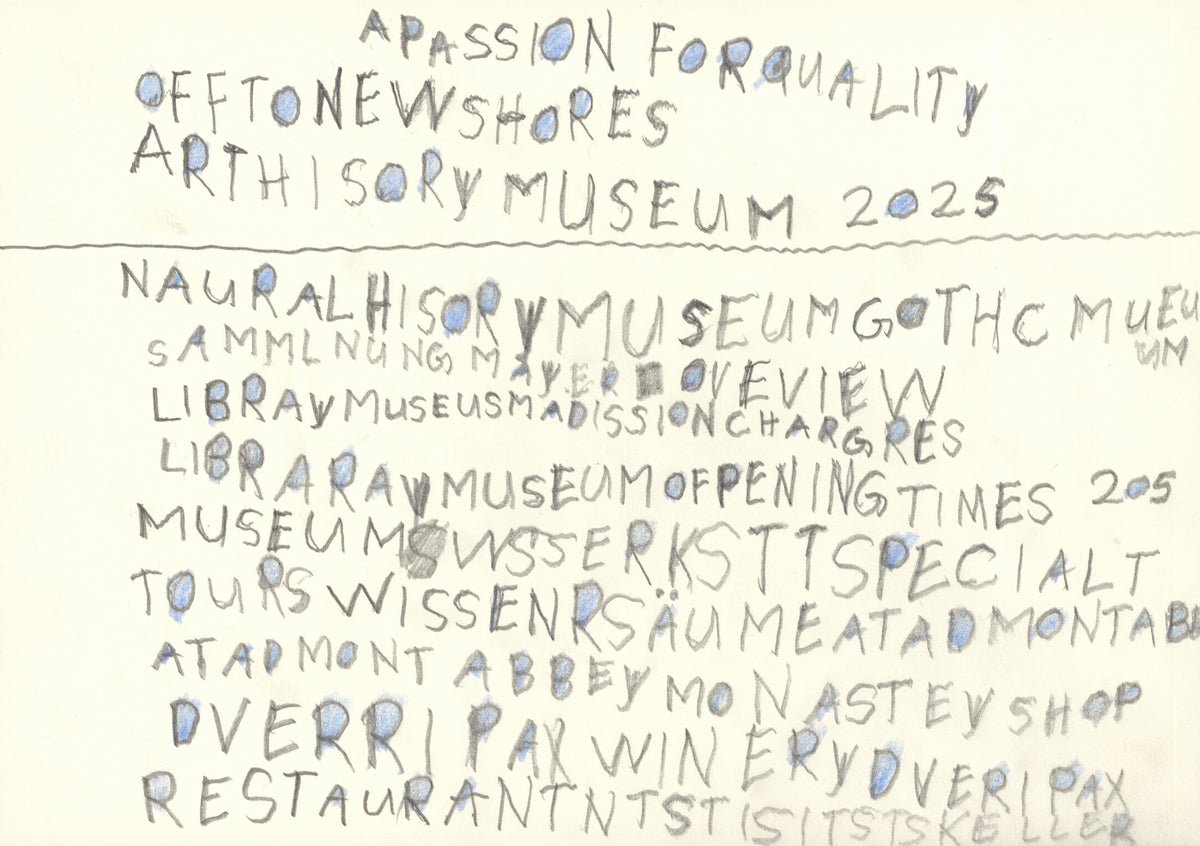 A PASSION FOR QUALITY
OFFTONEWSHORES
ARTHISORY MUSEUM 2025
NAURALHISORYMUSEUMGOTHC MUEU
UM
SAMMLNUNG MAYER OVEVIEW
LIBRAYMUSEUSMADISSIONCHARGRES
LIBRARAYMUSEUMOFPENINGTIMES 205
MUSEUMSWSSERKSTTSPECIALT
TOURSWISSENRSÄUMEATADMONTABB
ATADMONT ABBEY MONASTEY SHOP
DVERRI PAX WINERYDVERI PAX
RESTAURANTNTSTISITSTSKELLER